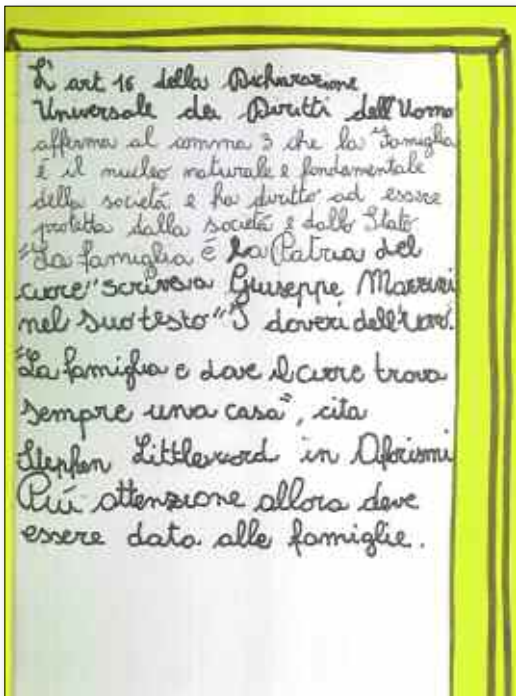 L'art 16 della Dichiarazione
Universale dei Diritti dell'Uomo
afferma al comma 3 che la "Famiglia
è il nucleo naturale e fondamentale
della società e ha diritto ad essere
protetta dalla società e dallo Stato
"La famiglia è la Patria del
cuore" scriveva Giuseppe Mazzini
nel suo testo "I doveri dell'uomo".
"La famiglia è dove il cuore trova
sempre una casa", cita
Stephen Littleword in Aforismi
Più attenzione allora deve
essere data alle famiglie.